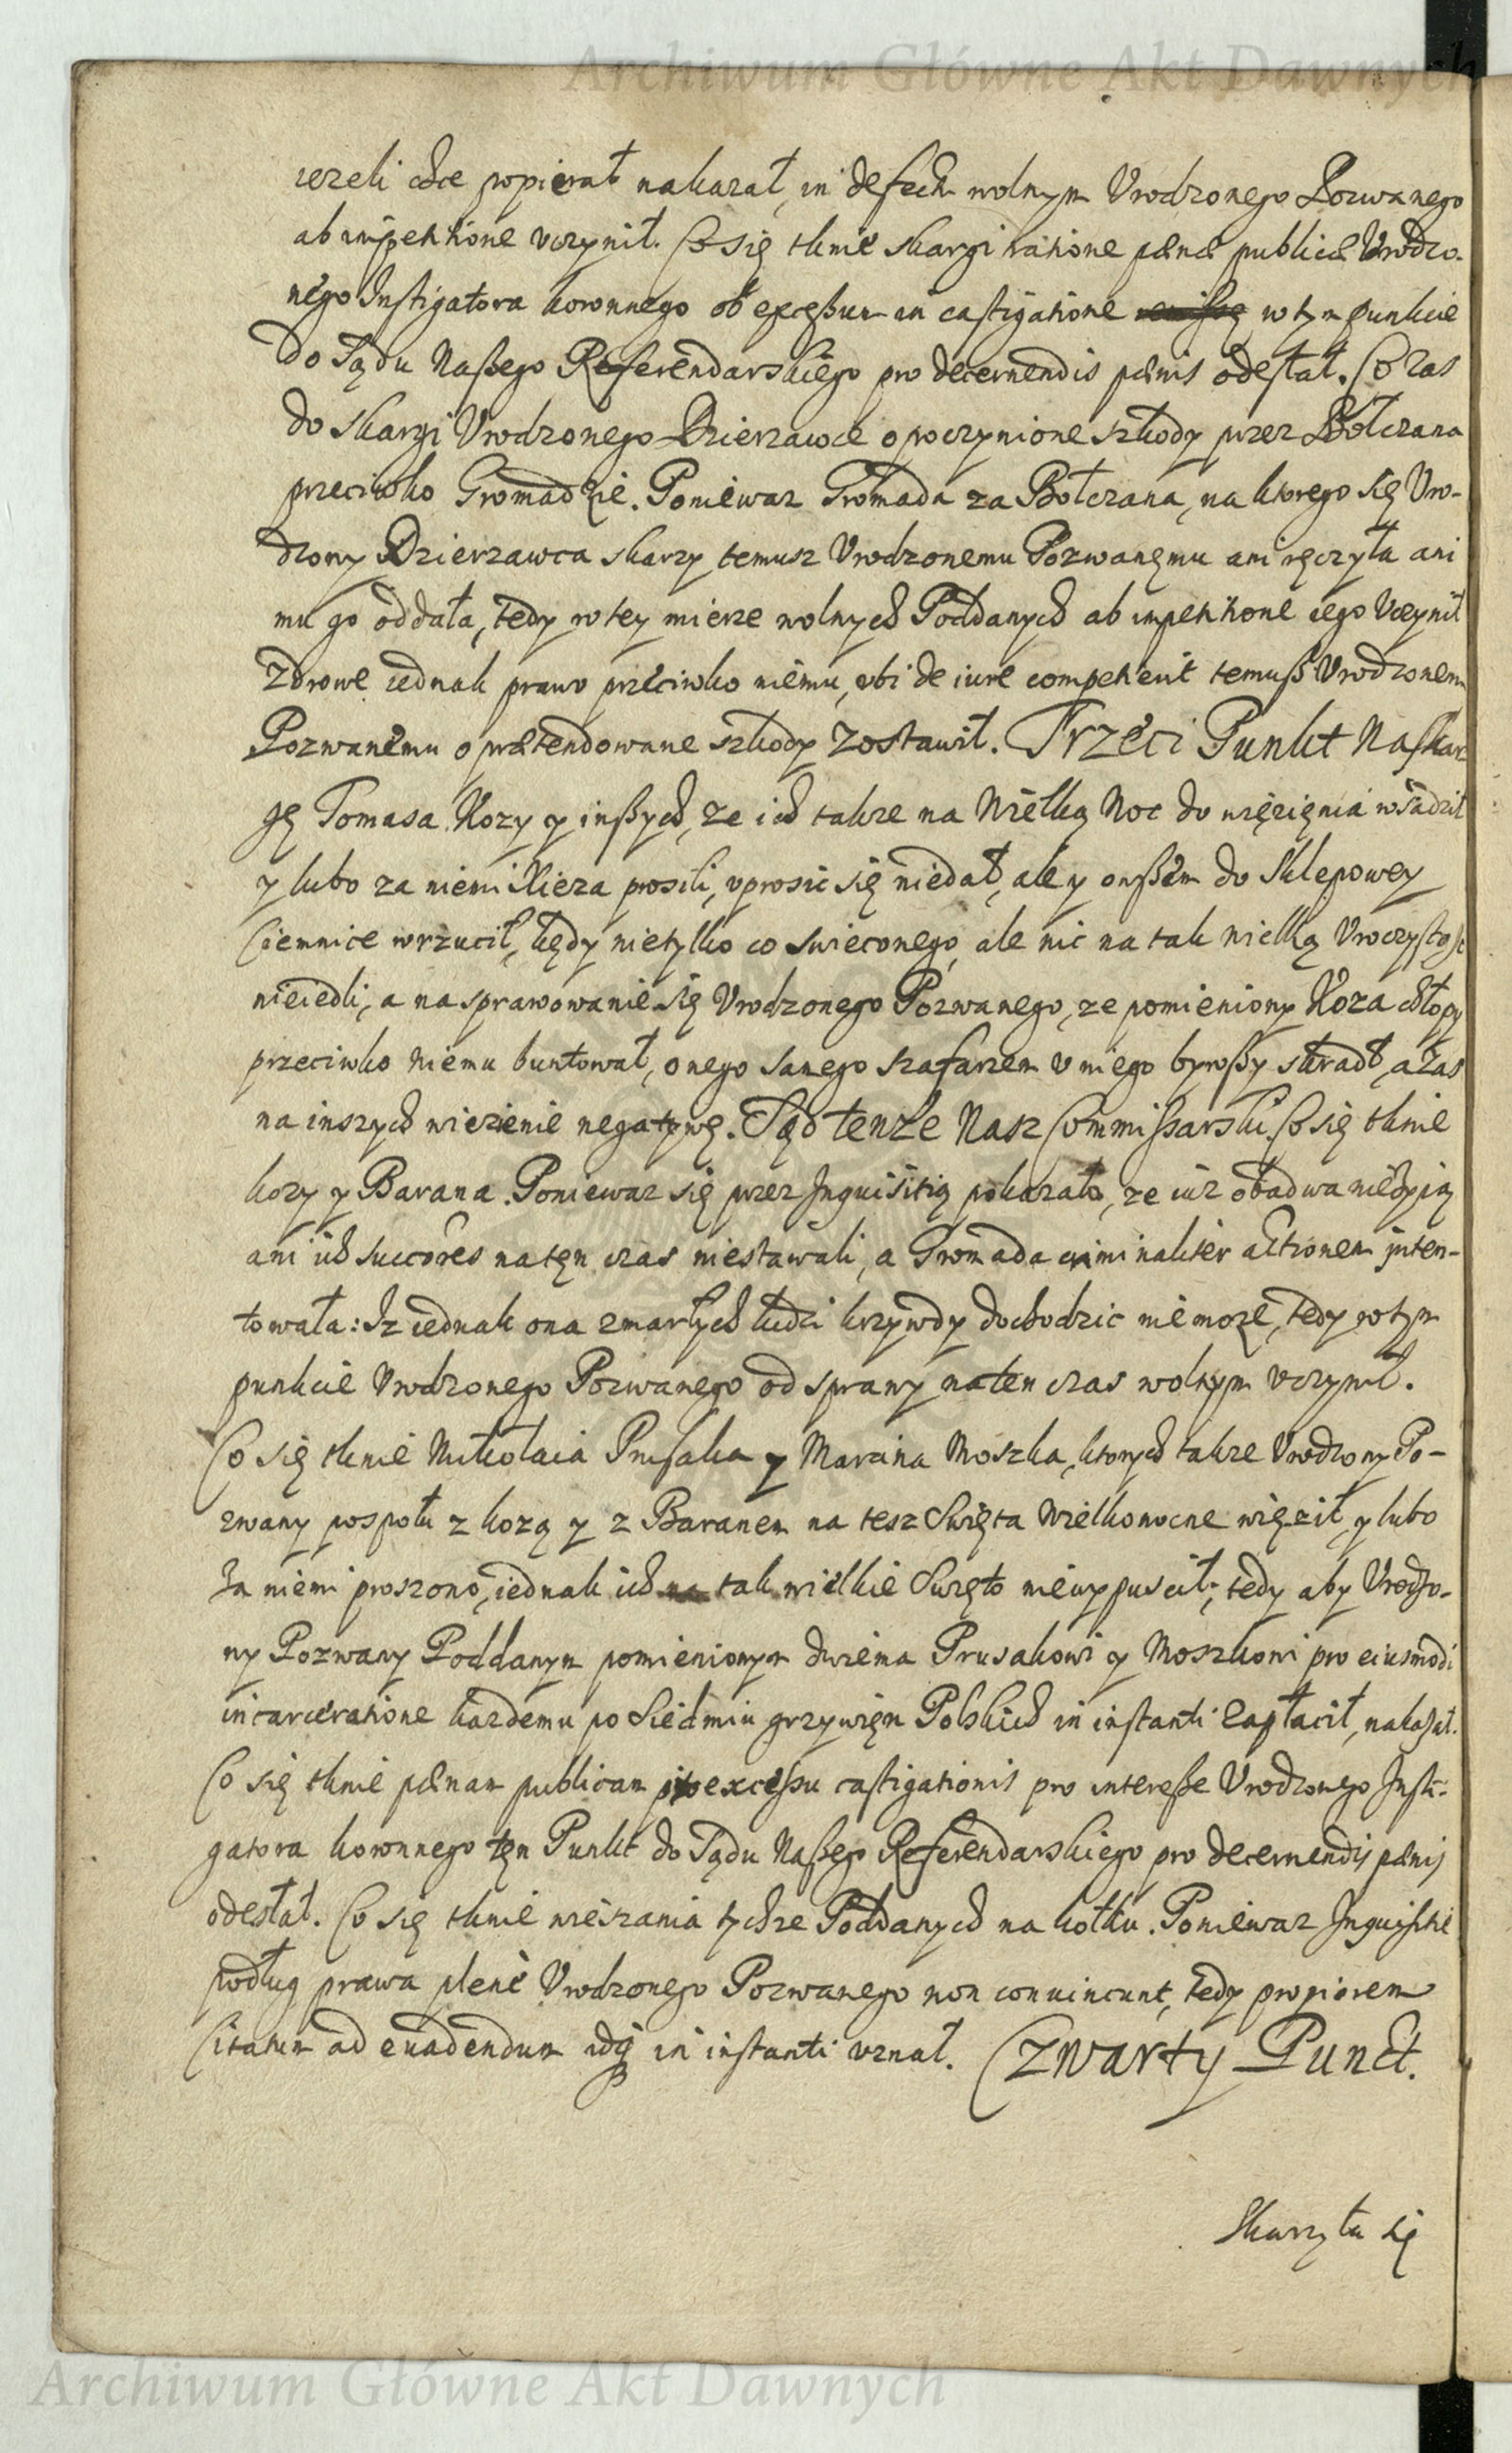 Archiwum Główne Akt Dawnych
iezeli chce popierał nakazał, in defectu wolnym Vrodzonego Pozwanego
ab impetitione vczynił. Co się tknie skargi ratione pænæ publicæ Vrodzo-
nego Instigatora koronnego ob excessum in castigatione w tym punkcie
do Sądu Naszego Referendarskiego pro decernendis pænis odesłał. Co zas
do skargi Vrodzonego Dzierzawce o poczynione szkody przez Bołczana
przeciwko Gromadzie. Poniewaz Gromada za Bołczana, na ktorego się Vro-
dzony Dzierzawca skarzy temusz Vrodzonemu Pozwanęmu ani ręczyła ani
mu go oddała, tedy w tey mierze wolnych Poddanych ab impetitione iego vczynił
Zdrowe iednak prawo przeciwko niemu, vbi de iure competierit temusz Vrodzonem
Pozwanemu o prætendowane szkody zostawił. Trzeci Punkt Na skar
gę Tomasa Kozy y inszych, ze ich takze na Wielką Noc do więzięnia wsadził
y lubo za niemi Xięza prosili, vprosic się niedał, ale y owszem do Sklepowey
Ciemnice wrzucił, kędy nietylko co swieconego, ale nic na tak wielką Vroczystosc
nieiedli, a na sprawowanie się Vrodzonego Pozwanego, ze pomieniony Koza chłopy
przeciwko niemu buntował, onego samego szafarzem v niego bywszy skradł, a zas
na inszych wiezienie negatywę. Sąd tenze Nasz Commissarski. Co się tknie
kozy y Barana. Poniewaz się przez Inquisitią pokazało, ze iuz obadwa nieżyią
ani ich succores natęn czas niestawali, a Gromada criminaliter actionem inten-
towała: Iz iednak ona zmarłych ludzi krzywdy dochodzic niemoze, tedy w tym
punkcie Vrodzonego Pozwanego od sprawy naten czas wolnym vczynił.
Co się tknie Mikołaia Prusaka y Marcina Moszka, ktorych takze Vrodzony Po-
zwany pospołu z kozą y z Baranem na tesz Swięta Wielkonocne więził, y lubo
za niemi proszono, iednak ich na tak wielkie Swięto niewypuscił, tedy aby Vrodzo-
ny Pozwany Poddanym pomienionym dwiema Prusakowi y Moszkowi pro eiusmodi
incarceratione kazdemu po Siedmiu grzywięn Polskich in instanti zapłacił, nakazał.
Co się tknie pænam publicam pro excessu castigationis pro interesse Vrodzonego Insti-
gatora koronnego tęn Punkt do Sądu Naszego Referendarskiego pro decernendis pænis
odesłał. Co się tknie wieszania tychze Poddanych na kołku. Poniewaz Inquisitie
podług prawa plene Vrodzonego Pozwanego non conuincunt, tedy propiorem
Citatum ad euadendum idq́ in instanti vznał. Czwarty Punct.
Skarzyła się
Archiwum Główne Akt Dawnych